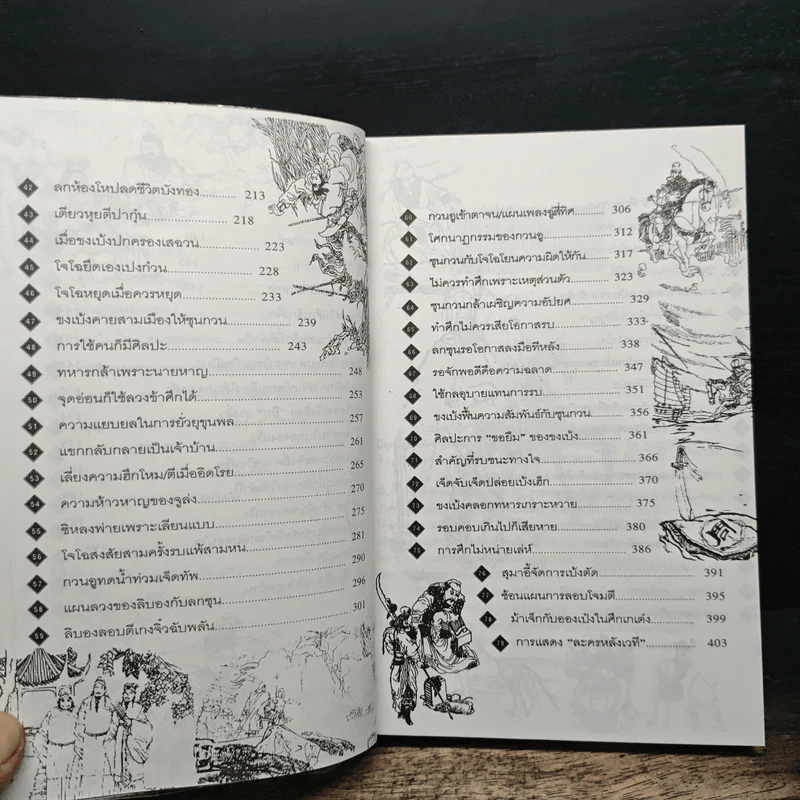 42 ลกห้องโหปลดชีวิตบังทอง.......... 213
43 เตียวหุยตีปากุ๋น.......... 218
44 เมื่อขงเบ้งปกครองเสฉวน.......... 223
45 โจโฉยึดเองเปงก๋วน.......... 228
46 โจโฉหยุดเมื่อควรหยุด.......... 233
47 ขงเบ้งคายสามเมืองให้ซุนกวน.......... 239
48 การใช้คนก็มีศิลปะ.......... 243
49 ทหารกล้าเพราะนายหาญ.......... 248
50 จุดอ่อนก็ใช้ลวงข้าศึกได้.......... 253
51 ความแยบยลในการยั่วยุขุนพล.......... 257
52 แขกกลับกลายเป็นเจ้าบ้าน.......... 261
53 เลี่ยงความฮึกโหม/ตีเมื่ออิดโรย.......... 265
54 ความห้าวหาญของจูล่ง.......... 270
55 ซิหลงพ่ายเพราะเลียนแบบ.......... 275
56 โจโฉสงสัยสามครั้งรบแพ้สามหน.......... 281
57 กวนอูทดน้ำท่วมเจ็ดทัพ.......... 290
58 แผนลวงของลิบองกับลกซุน.......... 296
59 ลิบองลอบตีเกงจิ๋วฉับพลัน.......... 301
60 กวนอูเข้าตาจน/แผนเพลงอู๋สี่ทิศ.......... 306
61 โศกนาฏกรรมของกวนอู.......... 312
62 ซุนกวนกับโจโฉโยนความผิดให้กัน.......... 317
63 ไม่ควรทำศึกเพราะเหตุส่วนตัว.......... 323
64 ซุนกวนกล้าเผชิญความอัปยศ.......... 329
65 ทำศึกไม่ควรเสียโอกาสรบ.......... 333
66 ลกซุนรอโอกาสลงมือทีหลัง.......... 338
67 รอจักพอดีคือความฉลาด.......... 347
68 ใช้กลอุบายแทนการรบ.......... 351
69 ขงเบ้งฟื้นความสัมพันธ์กับซุนกวน.......... 356
70 ศิลปะการ "ขอยืม" ของขงเบ้ง.......... 361
71 สำคัญที่รบชนะทางใจ.......... 366
72 เจ็ดจับเจ็ดปล่อยเบ้งเฮ็ก.......... 370
73 ขงเบ้งคลอกทหารเกราะหวาย.......... 375
74 รอบคอบเกินไปก็เสียหาย.......... 380
75 การศึกไม่หน่ายเล่ห์.......... 386
76 สุมาอี้จัดการเบ้งตัด.......... 391
77 ซ้อนแผนการลอบโจมตี.......... 395
78 ม้าเจ็กกับอองเป๋งในศึกเกเต๋ง.......... 399
79 การแสดง "ละครหลังเวที".......... 403